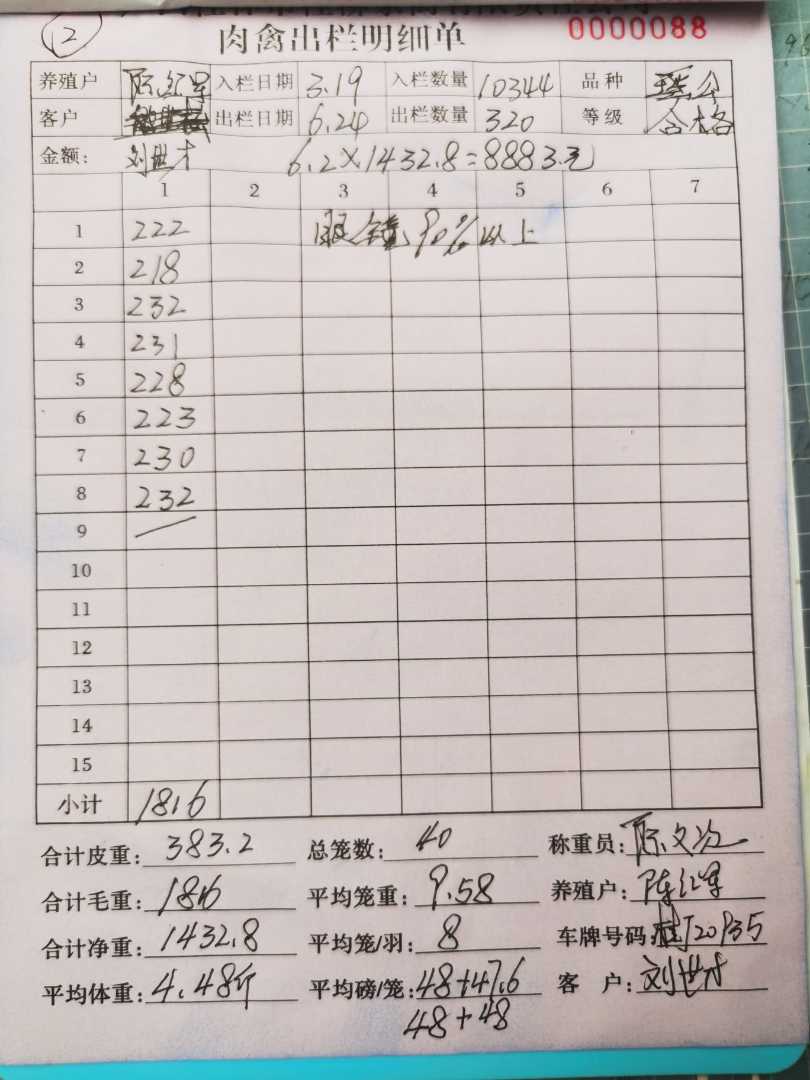 12
肉禽出栏明细单 0000088
养殖户 陈红军 入栏日期 3.19 入栏数量 10344 品种
客户 出栏日期 6.24 出栏数量 320 等级 合格
金额: 刘世才 6.2×1432.8=8883.元
1 2 3 4 5 6 7
1 222 90%以上
2 218
3 232
4 231
5 228
6 223
7 230
8 232
9 —
10
11
12
13
14
15
小计 1816
合计皮重: 383.2 总笼数: 40 称重员: 陈文次
合计毛重: 1816 平均笼重: 9.58 养殖户: 陈红军
合计净重: 1432.8 平均笼/羽: 8 车牌号码: 桂J20935
平均体重: 4.48斤 平均磅/笼: 48+47.6 客 户: 刘世才
48+48